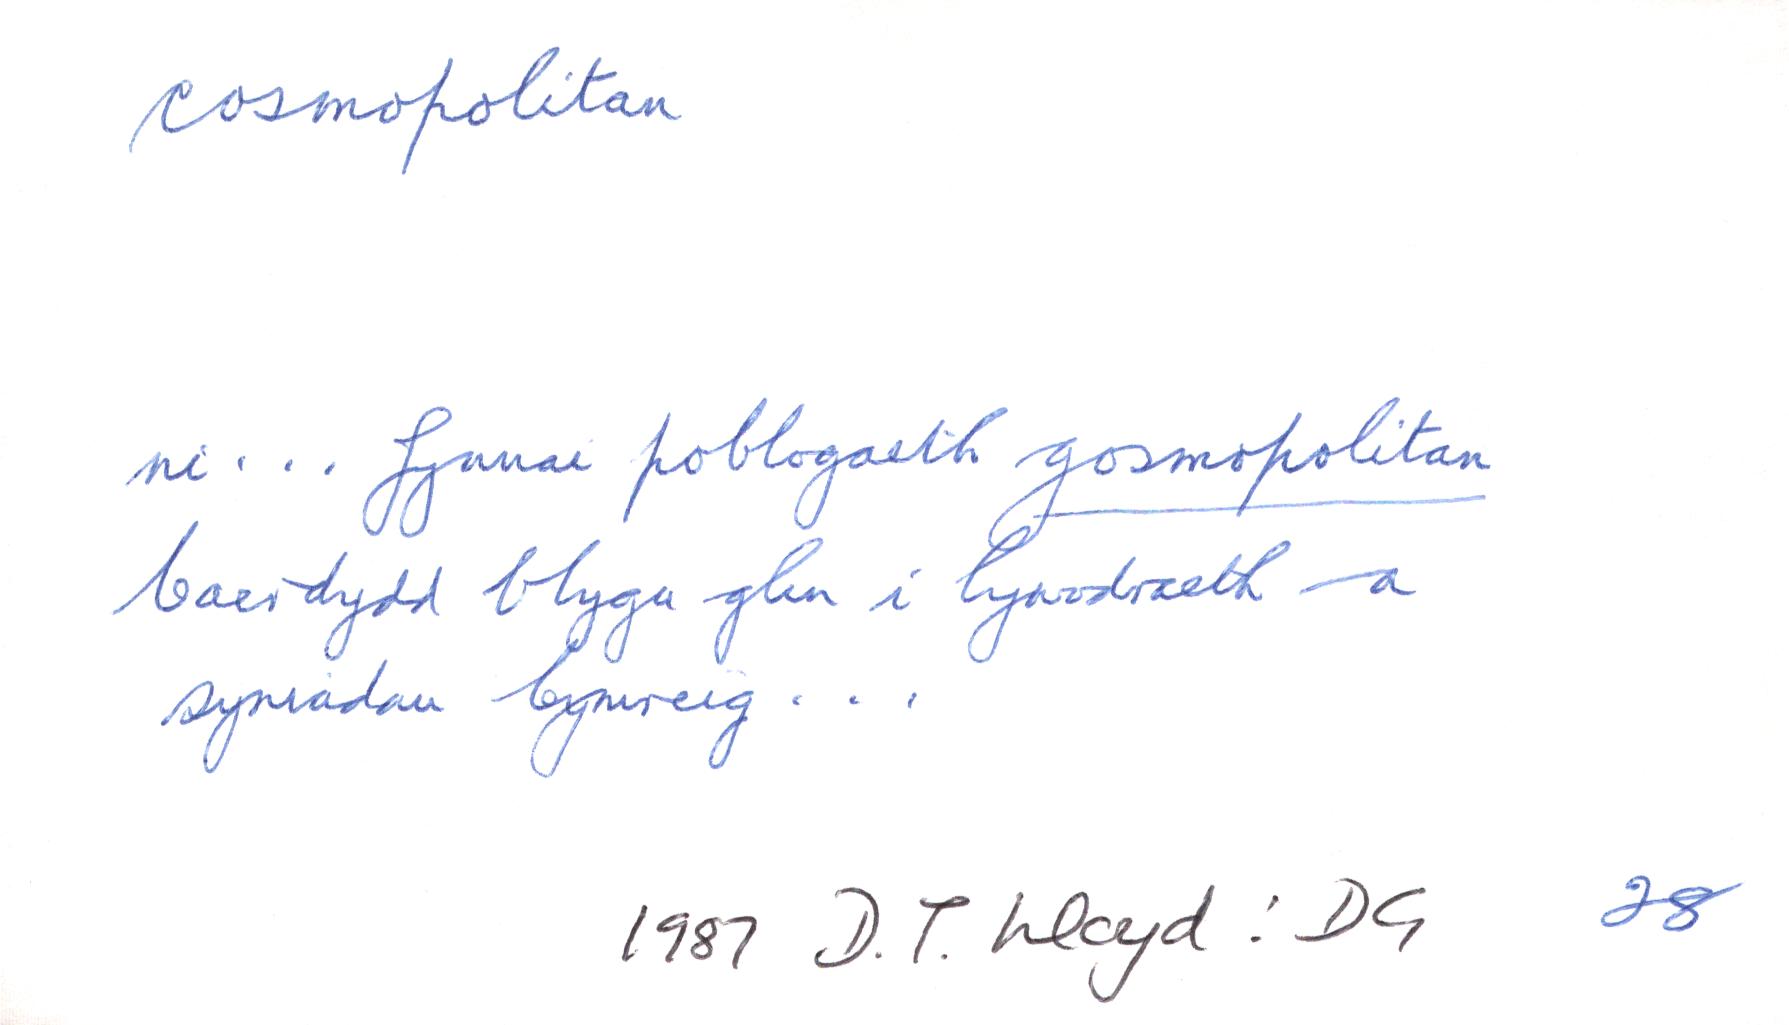 cosmopolitan
ni . . . fynnai poblogaeth gosmopolitan
Caerdydd blygu glin i lywodraeth – a
syniadau Cymreig . . .
1987 D. T. Lloyd : DG 28